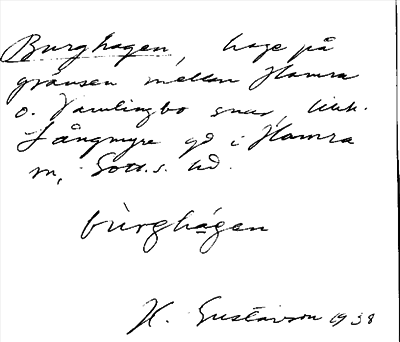 Burghagen, hage på
gränsen mellan Hamra
o. Vamlingbo snr, tillh.
Långmyre gd i Hamra
sn, Gotl.s. hd.
bùrghágen
H. Gustavson 1938